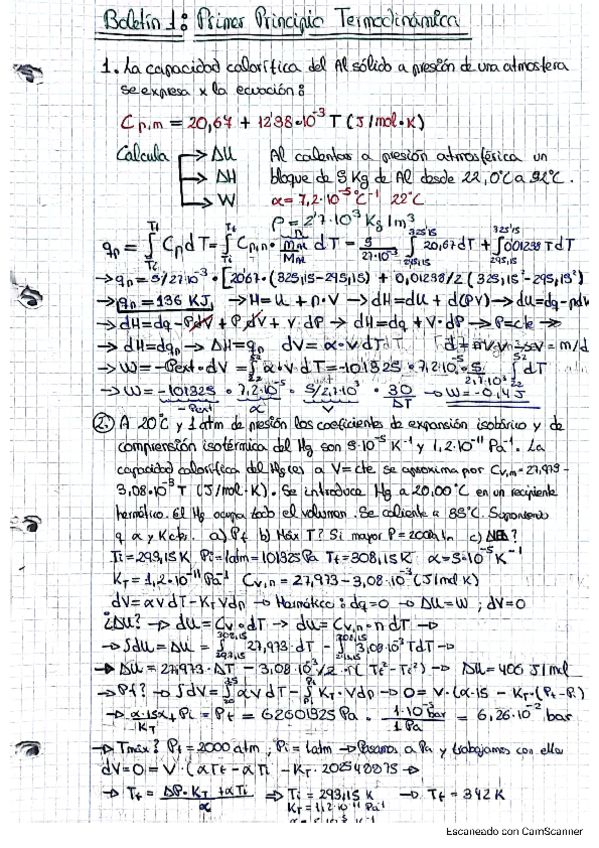 Boletín 1: Primer Principio Termodinámica
1. La capacidad calorífica del Al sólido a presión de una atmosfera
se expresa x la ecuación:
Cp,m = 20,67 + 12'38·10⁻³ T (J/mol·K)
Calcula → ΔU Al calentar a presión atmosférica un
→ ΔH bloque de 5 Kg de Al desde 22,0°C a 52°C.
→ W α = 7,2·10⁻⁵ °C⁻¹ 22°C
ρ = 2'7·10³ Kg/m³
qp = ∫ Cp dT = ∫ Cp,m · dT = ∫ 20,67 dT + ∫ 0'01238 T dT
→ qp = 5/27·10⁻³ · [20'67 · (325,15-295,15) + 0,01238/2 (325,15² - 295,15²)
→ qp = 136 KJ → H = U + P·V → dH = dU + d(PV) → dU = dq - pdV
→ dH = dq - PdV + PdV + V·dP → dH = dq + V·dP → P = cte →
→ dH = dqp → ΔH = qp dV = α·V dT
→ W = -Pext·dV = ∫ α·V·dT = -101325 · 7,2·10⁻⁵ · 5/2,7·10³ ∫ dT
→ W = -101325 · 7,2·10⁻⁵ · 5/2,7·10³ · 30 → W = -0,4 J
-Pext α V ΔT
2. A 20°C y 1 atm de presión los coeficientes de expansión isobárico y de
compresión isotérmica del Hg son 5·10⁻⁵ K⁻¹ y 1,2·10⁻¹¹ Pa⁻¹. La
capacidad calorífica del Hg(l) a V=cte se aproxima por Cv,m = 27,973 -
3,08·10⁻³ T (J/mol·K). Se introduce Hg a 20,00°C en un recipiente
hermético. El Hg ocupa todo el volumen. Se calienta a 35°C. Suponiendo
q α y K ctes. a) Pf b) Máx T? Si mayor P = 2000 atm c) ΔU?
Ti = 293,15 K Pi = 1 atm = 101325 Pa Tf = 308,15 K α = 5·10⁻⁵ K⁻¹
KT = 1,2·10⁻¹¹ Pa⁻¹ Cv,m = 27,973 - 3,08·10⁻³ (J/mol K)
dV = αV dT - KT V dp → Hermético: dq=0 → ΔU = W ; dV=0
¿ΔU? → dU = Cv·dT → dU = Cv,m·n dT →
→ ∫dU = ΔU = ∫ 27,973·dT - ∫ 3,08·10⁻³ T dT →
→ ΔU = 27,973·ΔT - 3,08·10⁻³/2 · (Tf² - Ti²) → ΔU = 406 J/mol
→ Pf? → ∫dV = ∫ αV dT - ∫ KT·V dp → 0 = V·(α·15 - KT·(Pf - Pi)
→ α·15/KT + Pi = Pf = 62601325 Pa · 1·10⁻⁵ bar / 1 Pa = 6,26·10⁻² bar
→ Tmáx? Pf = 2000 atm, Pi = 1 atm → Pasamos a Pa y trabajamos con ella
dV = 0 = V·(αTf - αTi - KT·202548675 →
→ Tf = ΔP·KT + αTi / α ⇒ Ti = 293,15 K → Tf = 342 K
KT = 1,2·10⁻¹¹ Pa⁻¹
Escaneado con CamScanner